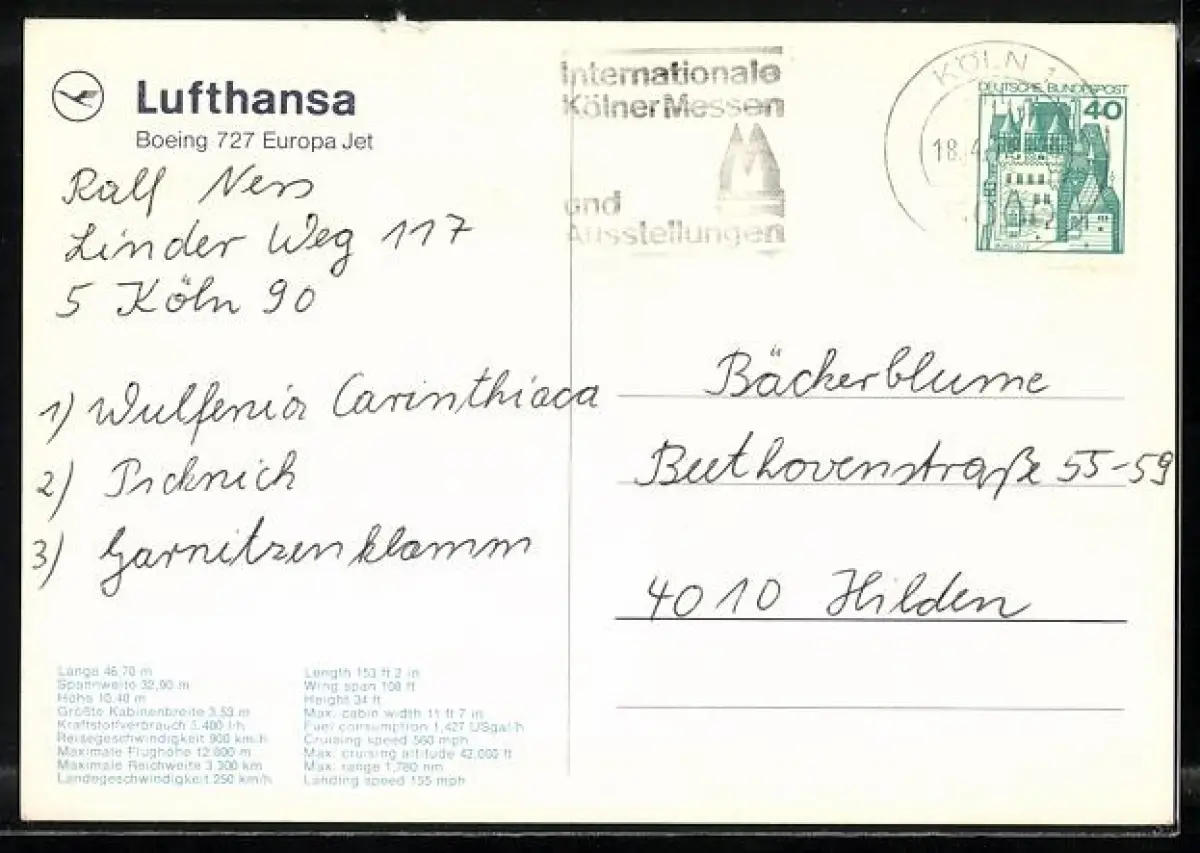 Lufthansa
Boeing 727 Europa Jet
Ralf Ness
Linder Weg 117
5 Köln 90
1) Wulfenia Carinthiaca
2) Picknick
3) Garnitzenklamm
Internationale
Kölner Messen
und
Ausstellungen
KÖLN 1
18.4.
DEUTSCHE BUNDESPOST
40
Bäckerblume
Beethovenstraße 55-59
4010 Hilden
Länge 46,70 m
Spannweite 32,90 m
Höhe 10,40 m
Größte Kabinenbreite 3,53 m
Kraftstoffverbrauch 5.400 l/h
Reisegeschwindigkeit 900 km/h
Maximale Flughöhe 12.800 m
Maximale Reichweite 3.300 km
Landegeschwindigkeit 250 km/h
Length 153 ft 2 in
Wing span 108 ft
Height 34 ft
Max. cabin width 11 ft 7 in
Fuel consumption 1,427 USgal/h
Cruising speed 560 mph
Max. cruising altitude 42,000 ft
Max. range 1,780 nm
Landing speed 155 mph